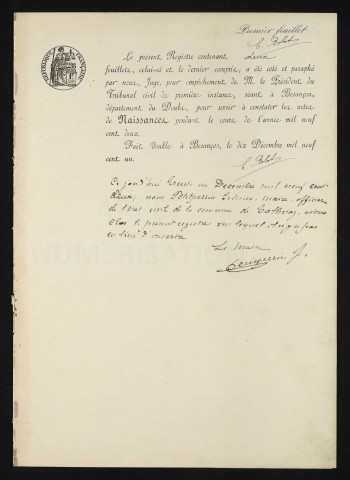 Premier feuillet
Le présent Registre contenant deux
feuillets, celui-ci et le dernier compris, a été coté et paraphé
par nous, Juge, pour empêchement de M. le Président du
Tribunal civil de première instance, séant à Besançon,
département du Doubs, pour servir à constater les actes
de Naissances pendant le cours de l'année mil neuf
cent deux.
Fait double à Besançon, le dix Décembre mil neuf
cent un.
Ce jourd'hui trente un Decembre mil neuf cent
deux, nous Petitperrin, maire, officier
de l'état civil de la commune de avons
clos le présent registre sur lequel il n'y a pas
Le Maire